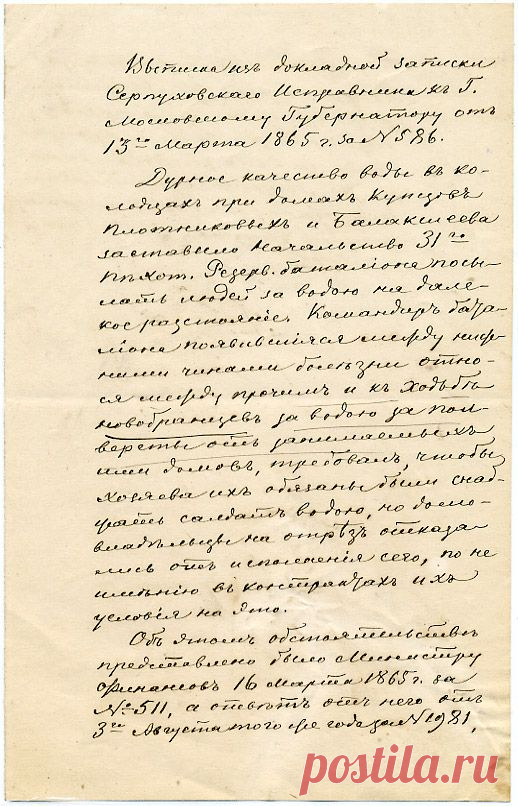 Выписка изъ докладной записки
Серпуховскаго Исправника къ Г.
Московскому Губернатору отъ
13го Марта 1865 г. за № 586.
Дурное качество воды въ ко-
лодцахъ при домахъ Купцовъ
Плотниковыхъ и Балаксеева
заставило начальство 31го
Пѣхот. Резерв. баталіона посы-
лать людей за водою на дале-
кое разстояніе. Командиръ бата-
ліона появившіяся между ниж-
ними чинами болѣзни относ-
я между прочимъ и къ ходьбѣ
новобранцевъ за водою за пол-
версты отъ занимаемыхъ
ими домовъ, требовалъ, чтобы
хозяева ихъ обязаны были снаб-
жать солдатъ водою, но домо-
владѣльцы на отрѣзъ отказа-
лись отъ исполненія сего, по не
имѣнію въ контрактахъ ихъ
условія на это.
Объ этомъ обстоятельствѣ
представлено было Министру
Финансовъ 16 Марта 1865 г. за
№ 511, а отвѣтъ отъ него отъ
3го Августа того же года за № 1981,
postila.ru